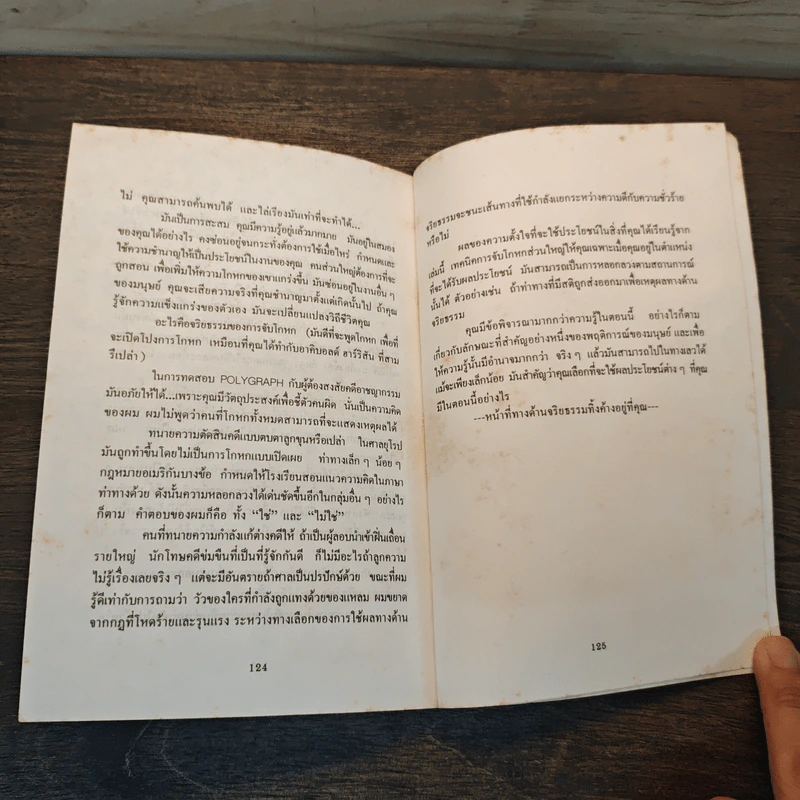 ไม่ คุณสามารถค้นพบได้ และไล่เรียงมันเท่าที่จะทำได้...
มันเป็นการสะสม คุณมีความรู้อยู่แล้วมากมาย มันอยู่ในสมอง
ของคุณได้อย่างไร คงซ่อนอยู่จนกระทั่งต้องการใช้เมื่อไหร่ กำหนดและ
ใช้ความชำนาญให้เป็นประโยชน์ในงานของคุณ คนส่วนใหญ่ต้องการที่จะ
ถูกสอน เพื่อเพิ่มให้ความโกหกของเขาแกร่งขึ้น มันซ่อนอยู่ในงานอื่น ๆ
ของมนุษย์ คุณจะเสียความจริงที่คุณชำนาญมาตั้งแต่เกิดนั้นไป ถ้าคุณ
รู้จักความแข็งแกร่งของตัวเอง มันจะเปลี่ยนแปลงวิถีชีวิตคุณ
อะไรคือจริยธรรมของการจับโกหก (มันดีที่จะพูดโกหก เพื่อที่
จะเปิดโปงการโกหก เหมือนที่คุณได้ทำกับอาคิบอลด์ ฮาร์ริสัน ที่สาม
รึเปล่า)
ในการทดสอบ POLYGRAPH กับผู้ต้องสงสัยคดีอาชญากรรม
มันอภัยให้ได้...เพราะคุณมีวัตถุประสงค์เพื่อชี้ตัวคนผิด นั่นเป็นความคิด
ของผม ผมไม่พูดว่าคนที่โกหกทั้งหมดสามารถที่จะแสดงเหตุผลได้
ทนายความตัดสินคดีแบบตบตาลูกขุนหรือเปล่า ในศาลยุโรป
มันถูกทำขึ้นโดยไม่เป็นการโกหกแบบเปิดเผย ท่าทางเล็ก ๆ น้อย ๆ
กฎหมายอเมริกันบางข้อ กำหนดให้โรงเรียนสอนแนวความคิดในภาษา
ท่าทางด้วย ดังนั้นความหลอกลวงได้เด่นชัดขึ้นอีกในกลุ่มอื่น ๆ อย่างไร
ก็ตาม คำตอบของผมก็คือ ทั้ง “ใช่” และ “ไม่ใช่”
คนที่ทนายความกำลังแก้ต่างคดีให้ ถ้าเป็นผู้ลอบนำเข้าฝิ่นเถื่อน
รายใหญ่ นักโทษคดีข่มขืนที่เป็นที่รู้จักกันดี ก็ไม่มีอะไรถ้าลูกความ
ไม่รู้เรื่องเลยจริง ๆ แต่จะมีอันตรายถ้าศาลเป็นปรปักษ์ด้วย ขณะที่ผม
รู้ดีเท่ากับการถามว่า วัวของใครที่กำลังถูกแทงด้วยของแหลม ผมขยาด
จากกฎที่โหดร้ายและรุนแรง ระหว่างทางเลือกของการใช้ผลทางด้าน
124
จริยธรรมจะชนะเส้นทางที่ใช้กำลังแยกระหว่างความดีกับความชั่วร้าย
หรือไม่ ผลของความตั้งใจที่จะใช้ประโยชน์ในสิ่งที่คุณได้เรียนรู้จาก
เล่มนี้ เทคนิคการจับโกหกส่วนใหญ่ให้คุณเฉพาะเมื่อคุณอยู่ในตำแหน่ง
ที่จะได้รับผลประโยชน์ มันสามารถเป็นการหลอกลวงตามสถานการณ์
นั้นได้ ตัวอย่างเช่น ถ้าท่าทางที่มีสติถูกส่งออกมาเพื่อเหตุผลทางด้าน
จริยธรรม
คุณมีข้อพิจารณามากกว่าความรู้ในตอนนี้ อย่างไรก็ตาม
เกี่ยวกับลักษณะที่สำคัญอย่างหนึ่งของพฤติการณ์ของมนุษย์ และเพื่อ
ให้ความรู้นั้นมีอำนาจมากกว่า จริง ๆ แล้วมันสามารถไปในทางเลวได้
แม้จะเพียงเล็กน้อย มันสำคัญว่าคุณเลือกที่จะใช้ผลประโยชน์ต่าง ๆ ที่คุณ
มีในตอนนี้อย่างไร
---หน้าที่ทางด้านจริยธรรมทิ้งค้างอยู่ที่คุณ---
125